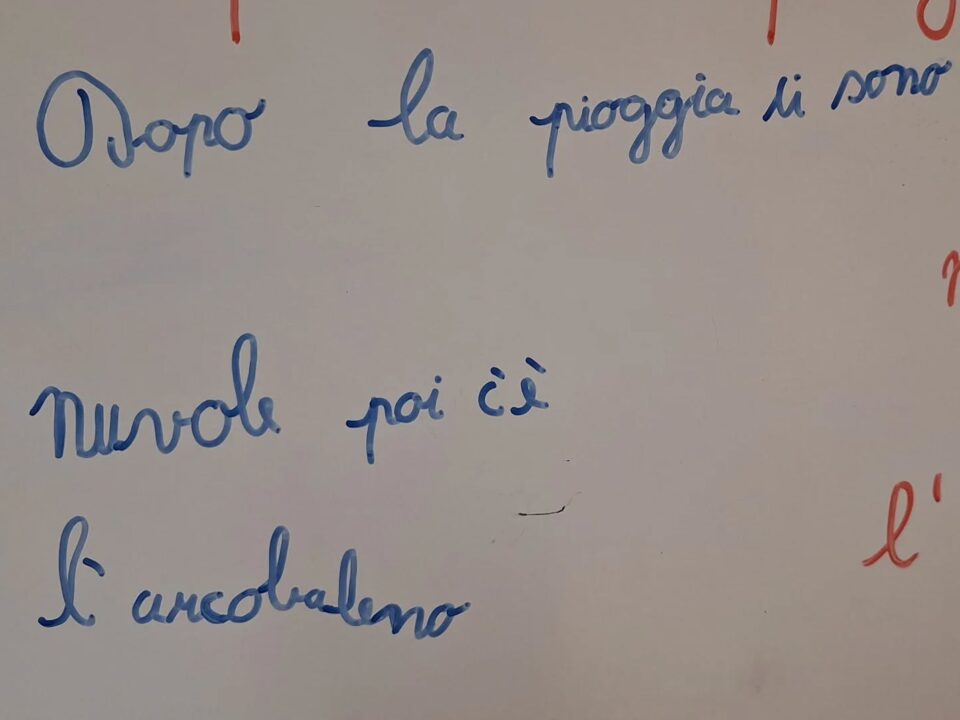 Dopo la pioggia si sono
nuvole poi c'è
l'arcobaleno
l'